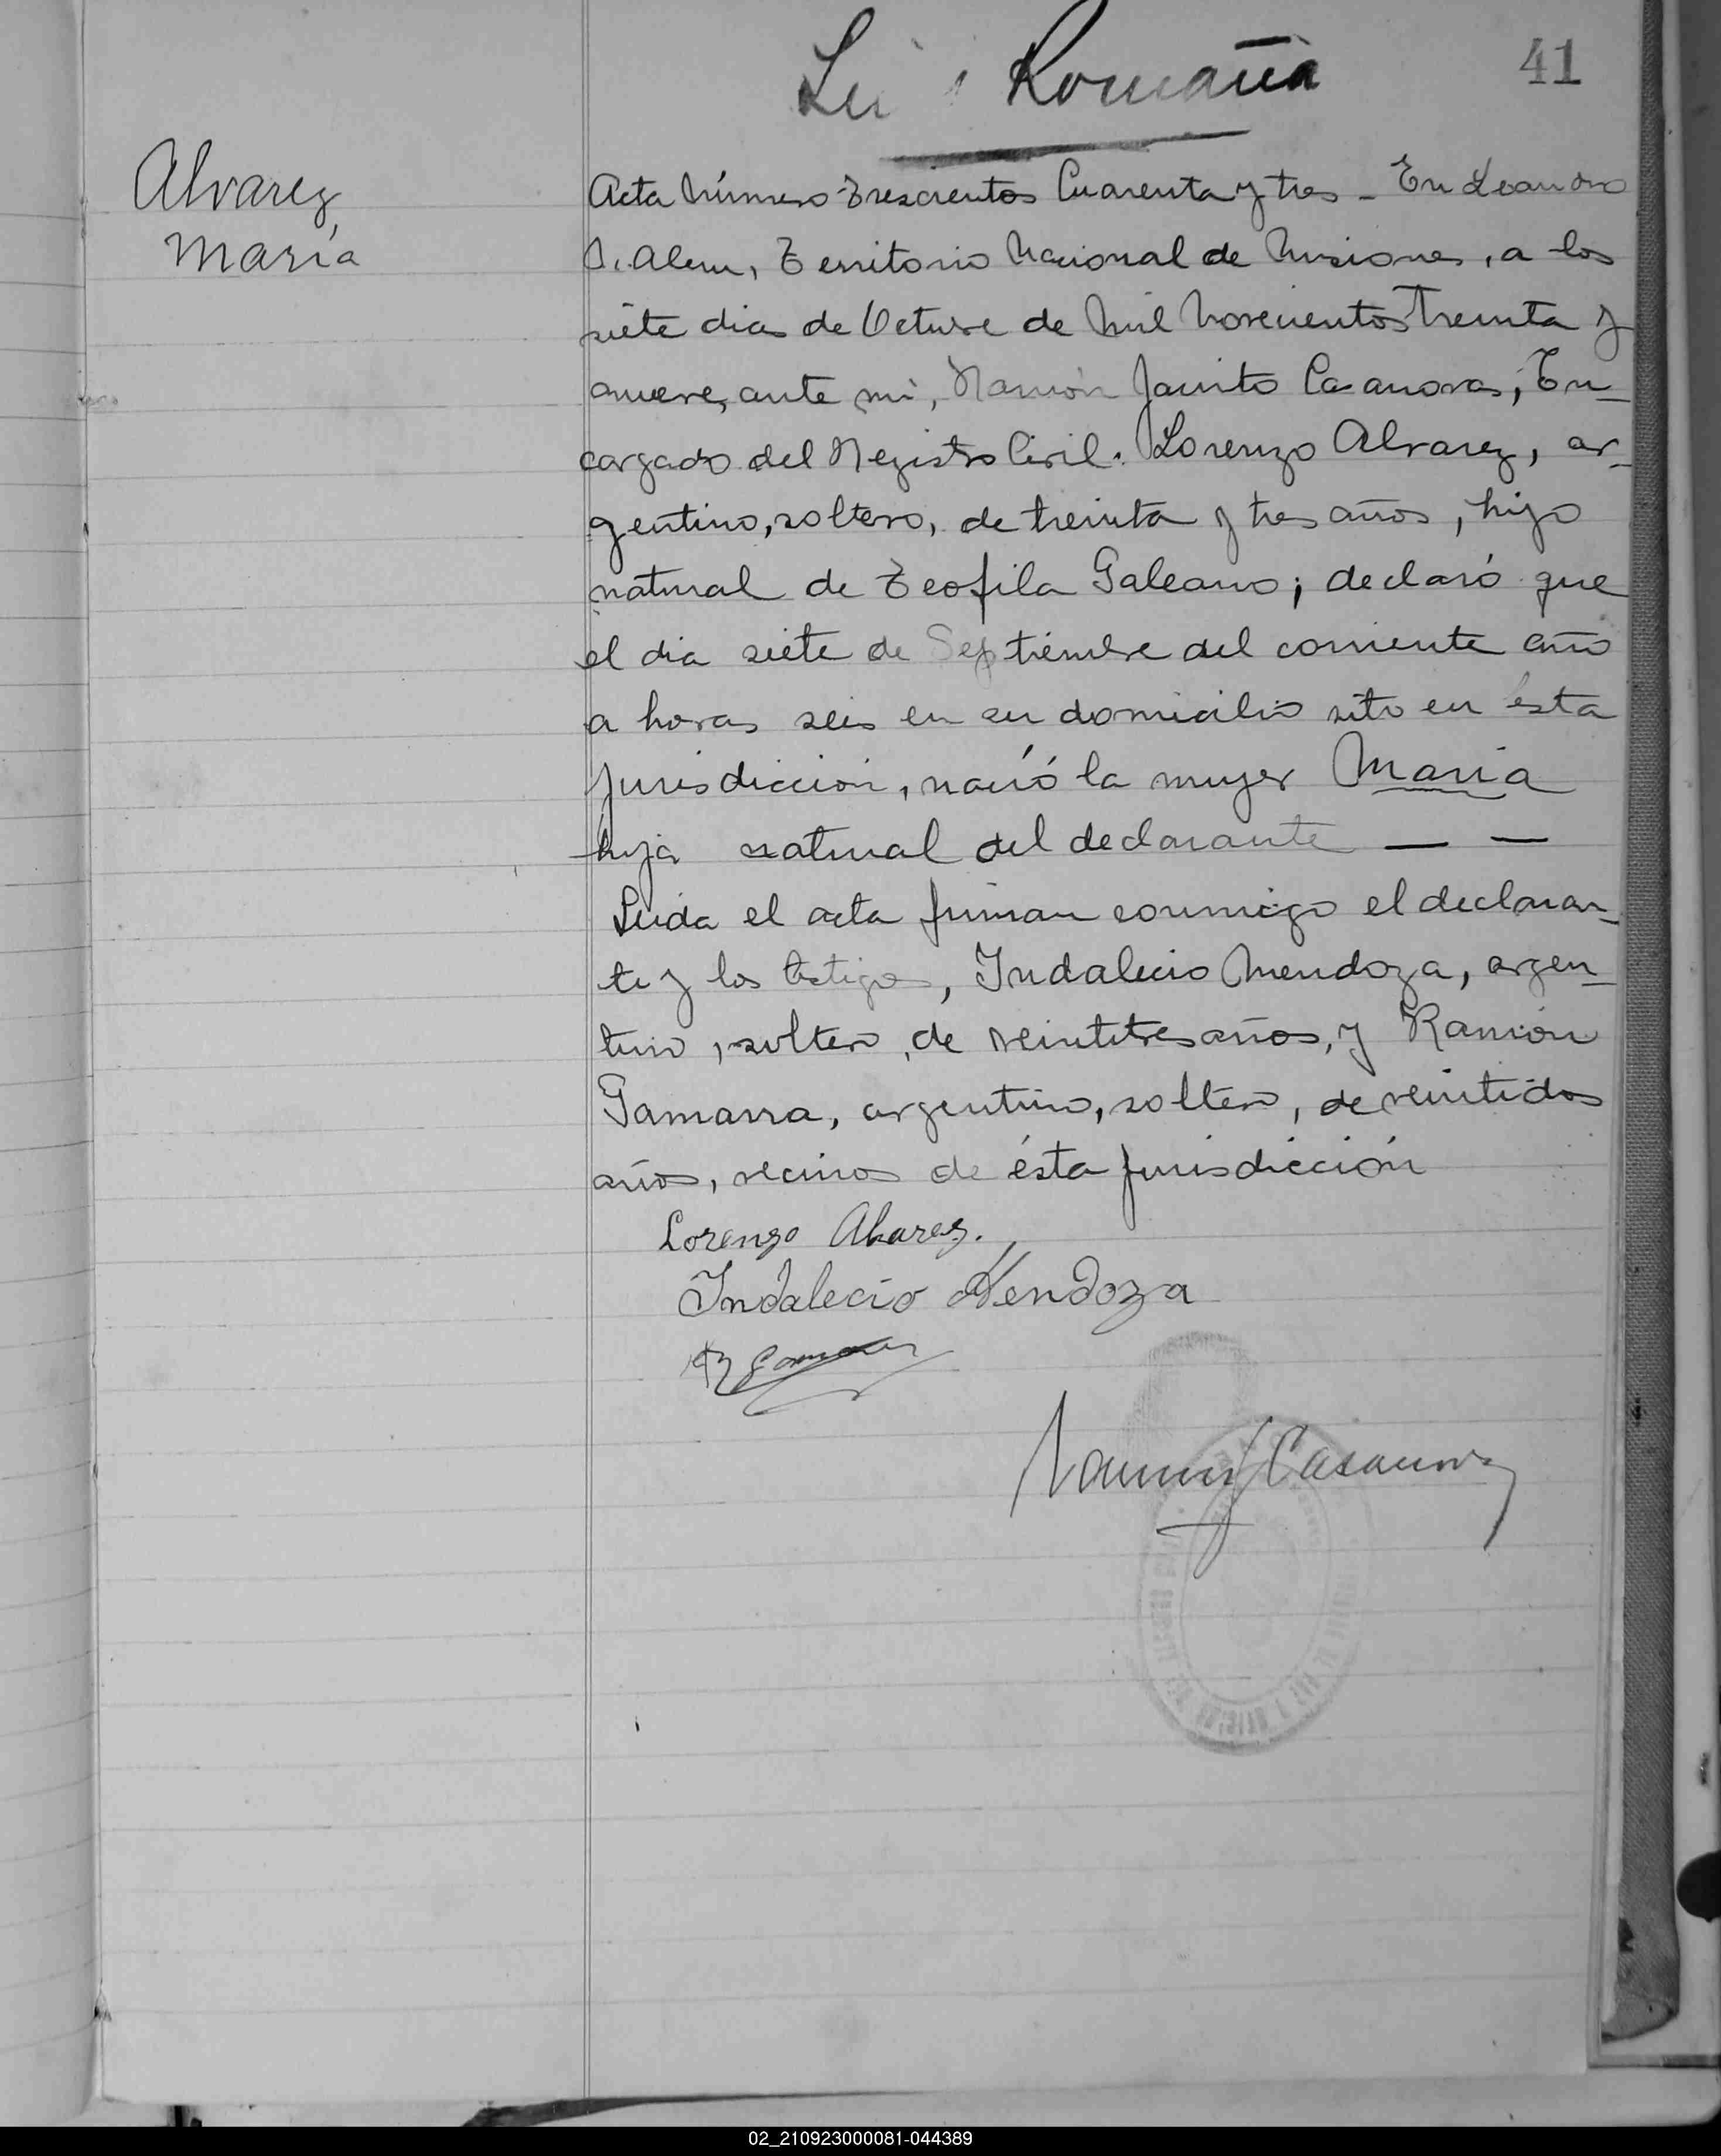 Romaña
41
Alvarez
María
Acta Número Trescientos Cuarenta y tres - En Leandro
N. Alem, Territorio Nacional de Misiones, a los
siete dias de Octubre de Mil Novecientos Treinta y
nueve, ante mi, Ramón Jacinto Casanova, En-
cargado del Registro Civil. Lorenzo Alvarez, ar-
gentino, soltero, de treinta y tres años, hijo
natural de Teofila Galeano; declaró que
el dia siete de Septiembre del corriente año
a horas seis en su domicilio sito en ésta
jurisdicción, nació la mujer María
hija natural del declarante — —
Leida el acta firman conmigo el declaran-
te y los testigos, Indalecio Mendoza, argen-
tino, soltero, de veintitres años, y Ramón
Gamarra, argentino, soltero, de veintidos
años, vecinos de ésta jurisdicción
Lorenzo Alvarez.
Indalecio Mendoza
Ramón J Casanova
02_210923000081-044389